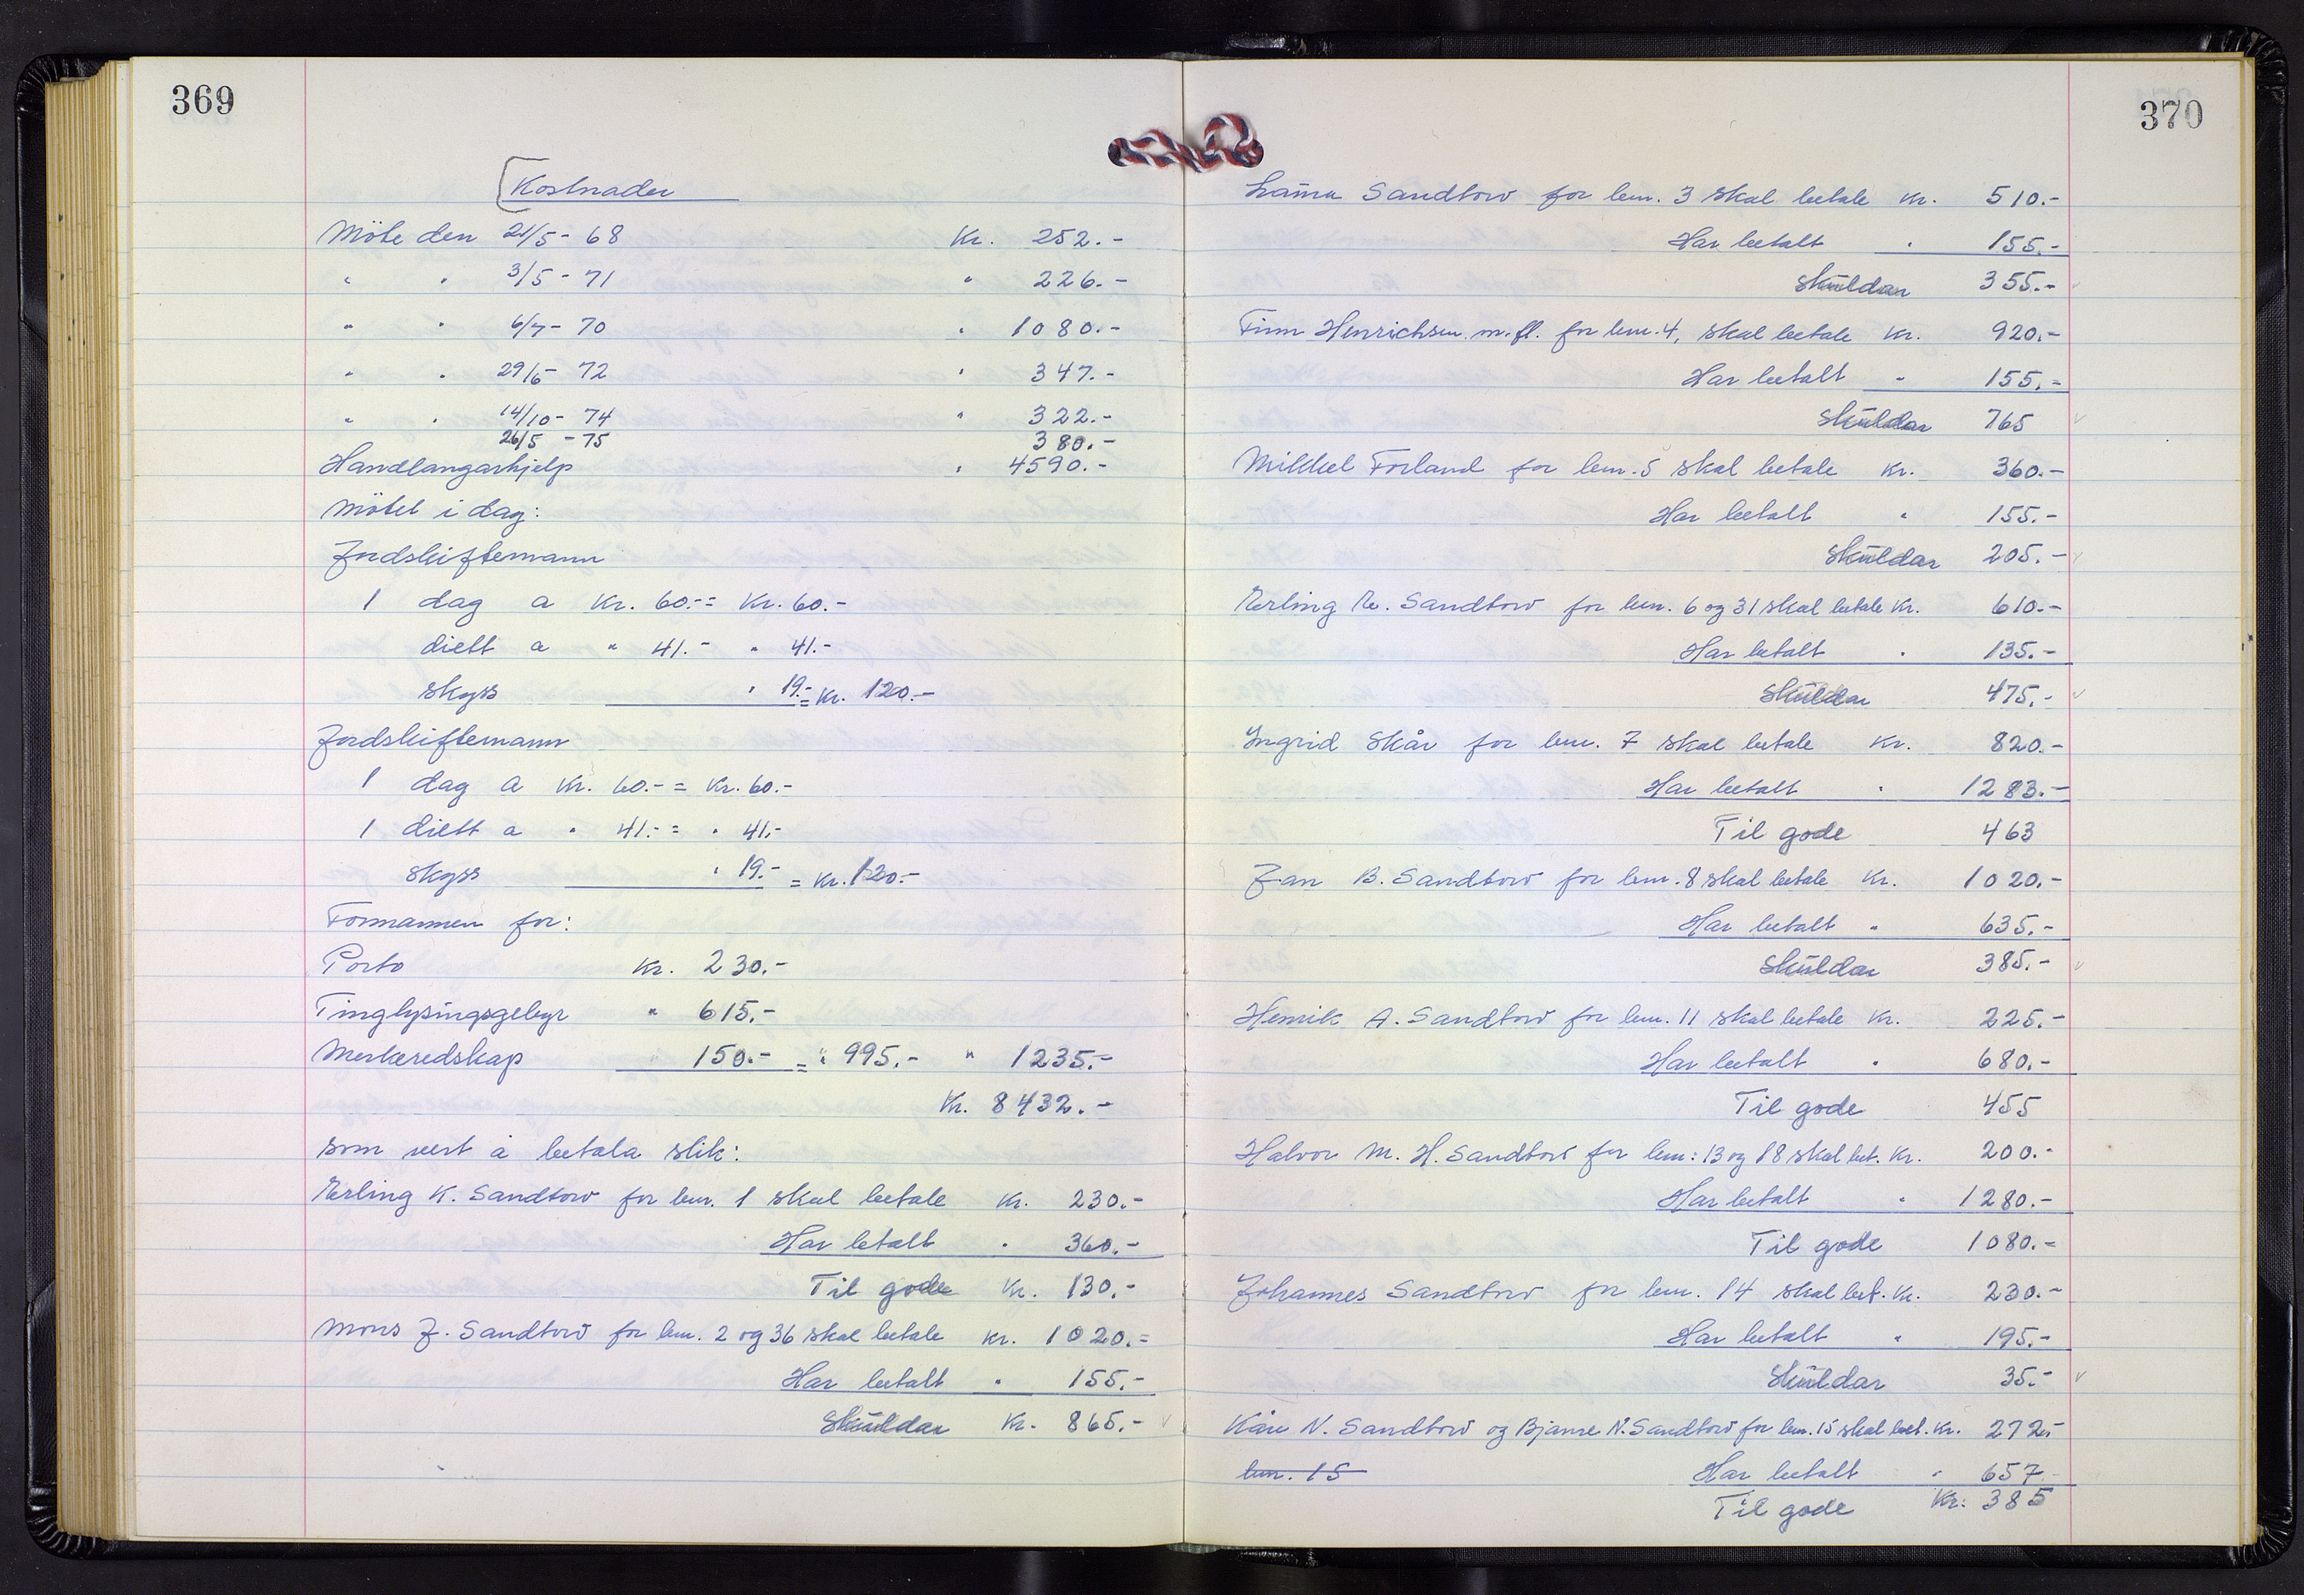 369
Kostnader
Möte den 21/5 - 68 Kr. 252.-
" " 3/5 - 71 " 226.-
" " 6/7 - 70 " 1080.-
" " 29/6 - 72 " 347.-
" " 14/10 - 74 " 322.-
26/5 - 75 380.-
Handlangarhjelp " 4590.-
Mötet i dag:
Jordskiftemann
1 dag a Kr. 60.- = Kr. 60.-
diett a " 41.- " 41.-
skyss " 19.- = Kr. 120.-
Jordskiftemann
1 dag a Kr. 60.- = Kr. 60.-
1 diett a " 41.- = " 41.-
skyss " 19.- = Kr. 120.-
Formannen for:
Porto Kr. 230.-
Tinglysingsgebyr " 615.-
Merkeredskap " 150.- = " 995.- " 1235.-
Kr. 8432.-
som vert å betala slik:
Erling K. Sandtorv for lnr. 1 skal betale Kr. 230.-
Har betalt " 360.-
Til gode Kr. 130.-
Mons J. Sandtorv for lnr. 2 og 36 skal betale Kr. 1020.-
Har betalt " 155.-
Skuldar Kr. 865.-
370
Sandtorv for lnr. 3 skal betale Kr. 510.-
Har betalt " 155.-
Skuldar 355.-
Finn Henrichsen m.fl. for lnr. 4, skal betale Kr. 920.-
Har betalt " 155.-
Skuldar 765
Mikkel Forland for lnr. 5 skal betale Kr. 360.-
Har betalt " 155.-
Skuldar 205.-
Erling E. Sandtorv for lnr. 6 og 31 skal betale Kr. 610.-
Har betalt " 135.-
Skuldar 475.-
Ingrid Skår for lnr. 7 skal betale Kr. 820.-
Har betalt " 1283.-
Til gode 463
Jan B. Sandtorv for lnr. 8 skal betale Kr. 1020.-
Har betalt " 635.-
Skuldar 385.-
Henrik A. Sandtorv for lnr. 11 skal betale Kr. 225.-
Har betalt " 680.-
Til gode 455
Halvor M. H. Sandtorv for lnr: 13 og 18 skal bet. Kr. 200.-
Har betalt " 1280.-
Til gode 1080.-
Johannes Sandtorv for lnr. 14 skal bet. Kr. 230.-
Har betalt " 195.-
Skuldar 35.-
Kåre N. Sandtorv og Bjarne N. Sandtorv for lnr. 15 skal bet. Kr. 272.-
lnr. 15 Har betalt " 657.-
Til gode Kr: 385